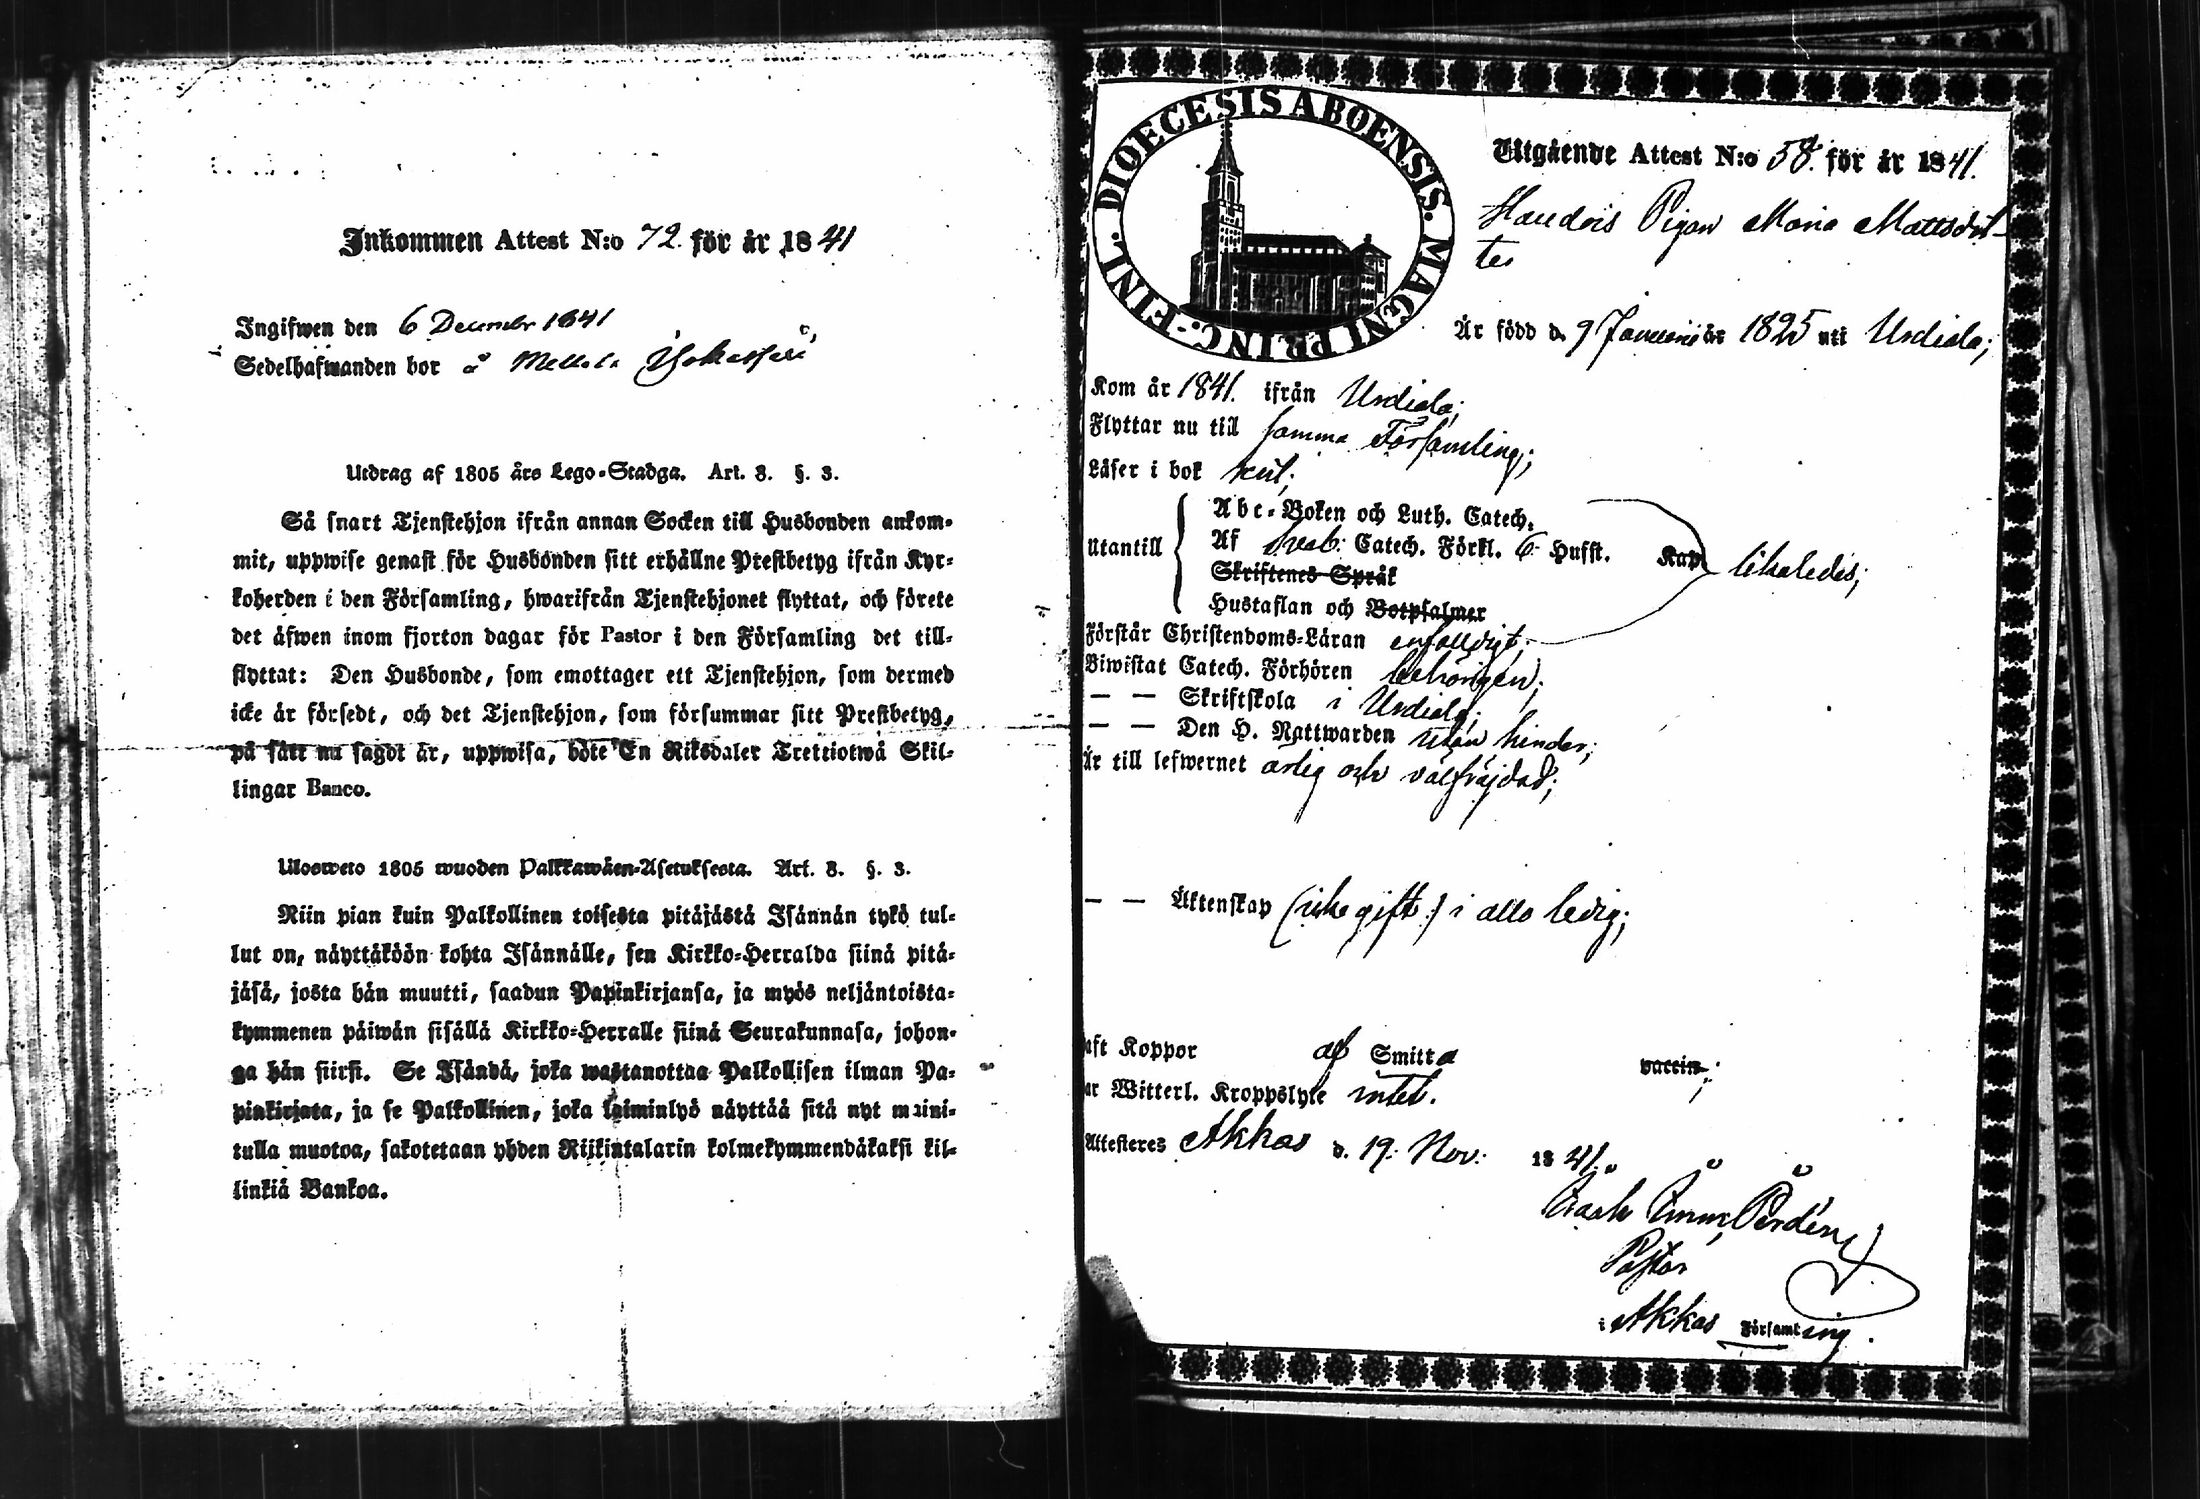 Inkommen Attest N:o 72. för år 1841
Ingifwen den 6 December 1841
Sedelhafwanden bor å Mellola
Utdrag af 1805 års Lego-Stadga. Art. 8. §. 3.
Så snart Tjenstehjon ifrån annan Socken till Husbonden ankom-
mit, uppwise genast för Husbonden sitt erhållne Prestbetyg ifrån Kyr-
koherden i den Församling, hwarifrån Tjenstehjonet flyttat, och förete
det äfwen inom fjorton dagar för Pastor i den Församling det till-
flyttat: Den Husbonde, som emottager ett Tjenstehjon, som dermed
icke är försedt, och det Tjenstehjon, som försummar sitt Prestbetyg,
på sätt nu sagdt är, uppwisa, böte En Riksdaler Trettiotwå Skil-
lingar Banco.
Ulosweto 1805 wuoden Palkkawäen-Asetuksesta. Art. 8. §. 3.
Niin pian kuin Palkollinen toisesta pitäjästä Isännän tykö tul-
lut on, näyttäköön kohta Isännälle, sen Kirkko-Herralda siinä pitä-
jäsä, josta hän muutti, saadun Papinkirjansa, ja myös neljäntoista-
kymmenen päiwän sisällä Kirkko-Herralle siinä Seurakunnasa, johon-
ga hän siirsi. Se Isändä, joka wastanottaa Palkollisen ilman Pa-
pinkirjata, ja se Palkollinen, joka laiminlyö näyttää sitä nyt maini-
tulla muotoa, sakotetaan yhden Riikintalarin kolmekymmendäkaksi kil-
linkiä Bankoa.
DIOECESIS ABOENSIS. MAGNI PRINC.-FINL.
Utgående Attest N:o 58. för år 1841.
Pigan Maria Mattsdot-
ter
Är född d. 9 Januarii år 1825 uti Urdiala;
Kom år 1841. ifrån Urdiala;
Flyttar nu till samma Församling;
Läser i bok
Utantill
Abc-Boken och Luth. Catech.
Af Sveb. Catech. Förkl. 6 Hufst. Kap. likaledes;
Skriftenes Språk
Hustaflan och Botpsalmer
Förstår Christendoms-Läran enfalldigt;
Biwistat Catech. Förhören behörigen;
— — Skriftskola i Urdiala;
— — Den H. Nattwarden utan hinder;
Är till lefwernet ärlig och välfräjdad;
— — Äktenskap (icke gift) i allo ledig;
aft Koppor af Smitta vaccin.;
ar Witterl. Kroppslyte intet.
Attesteres Akkas d. 19. Nov: 1841.
Pastor
i Akkas Församling.